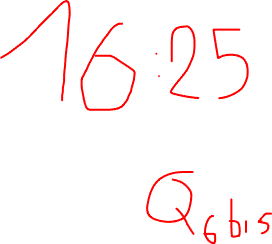 16:25
Q6bis